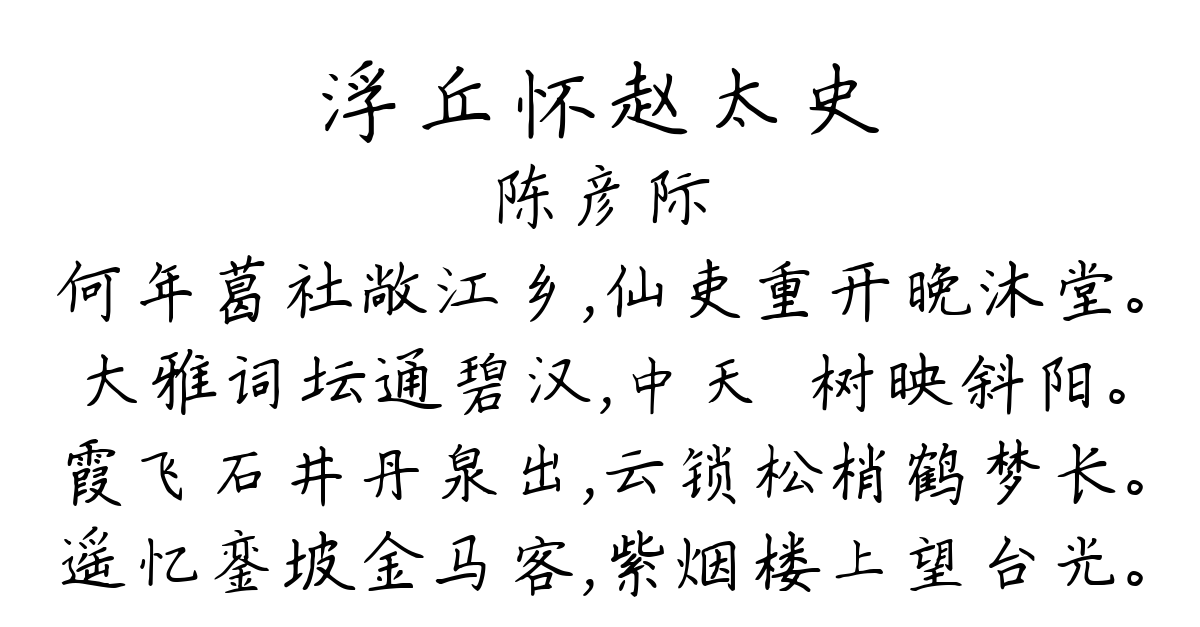 浮丘怀赵太史
陈彦际
何年葛社敞江乡,仙吏重开晚沐堂。
大雅词坛通碧汉,中天 树映斜阳。
霞飞石井丹泉出,云锁松梢鹤梦长。
遥忆銮坡金马客,紫烟楼上望台光。